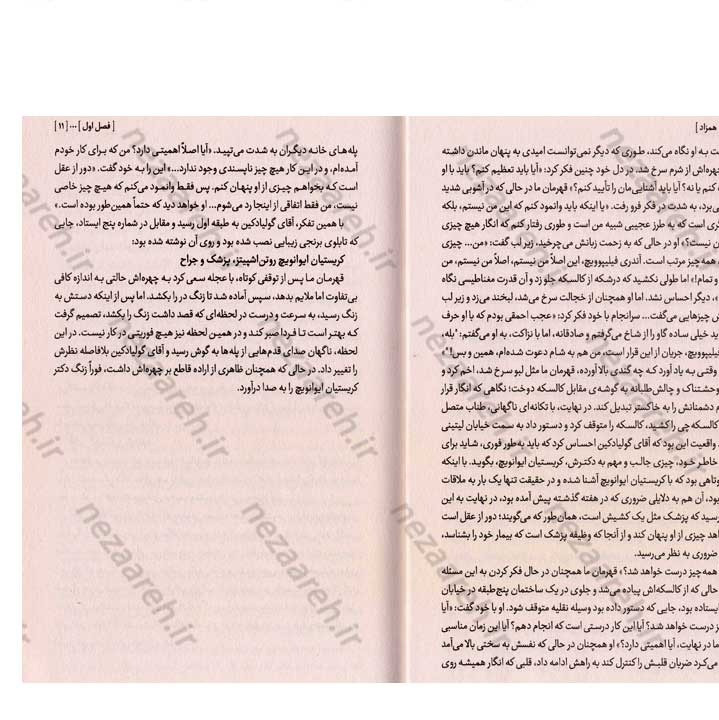 همزاد ]
ت به او نگاه می‌کند، طوری که دیگر نمی‌توانست امیدی به پنهان ماندن داشته
چهره‌اش از شرم سرخ شد. در دل خود چنین فکر کرد: «آیا باید تعظیم کنم؟ باید با او
کنم یا نه؟ آیا باید آشنایی‌مان را تأیید کنم؟» قهرمان ما در حالی که در آشوبی شدید
می‌برد، به شدت در فکر فرو رفت. «یا اینکه باید وانمود کنم که این من نیستم، بلکه
گری است که به طرز عجیبی شبیه من است و طوری رفتار کنم که انگار هیچ چیزی
ن نیست؟» او در حالی که به زحمت زبانش می‌چرخید، زیر لب گفت: «من... چیزی
همه چیز مرتب است. آندری فیلیپوویچ، این اصلاً من نیستم، من نیستم، من
و تمام!» اما طولی نکشید که درشکه از کالسکه جلو زد و آن قدرت مغناطیسی نگاه
، دیگر احساس نشد. اما او همچنان از خجالت سرخ می‌شد، لبخند می‌زد و زیر لب
چیزهایی می‌گفت... سرانجام با خود فکر کرد: «عجب احمقی بودم که با او حرف
ید خیلی ساده گاو را از شاخ می‌گرفتم و صادقانه، اما با نزاکت، به او می‌گفتم: "بله،
فیلیپوویچ، جریان از این قرار است، من هم به شام دعوت شده‌ام، همین و بس!"»
وقتی به یاد آورد که چه گندی بالا آورده، قهرمان ما مثل لبو سرخ شد، اخم کرد و
وحشتناک و چالش‌طلبانه به گوشه‌ی مقابل کالسکه دوخت؛ نگاهی که انگار قرار
دشمنانش را به خاکستر تبدیل کند. در نهایت، با تکانه‌ای ناگهانی، طناب متصل
کالسکه‌چی را کشید، کالسکه را متوقف کرد و دستور داد به سمت خیابان لیتینی
واقعیت این بود که آقای گولیادکین احساس کرد که باید به‌طور فوری، شاید برای
خاطر خود، چیزی جالب و مهم به دکترش، کریستیان ایوانویچ، بگوید. با اینکه
وتاهی بود که با کریستیان ایوانویچ آشنا شده و در حقیقت تنها یک بار به ملاقات
بود، آن هم به دلایلی ضروری که در هفته گذشته پیش آمده بود، در نهایت به این
رسید که پزشک مثل یک کشیش است، همان‌طور که می‌گویند؛ دور از عقل است
هد چیزی از او پنهان کند و از آنجا که وظیفه پزشک است که بیمار خود را بشناسد،
ضروری به نظر می‌رسید.
همه چیز درست خواهد شد؟» قهرمان ما همچنان در حال فکر کردن به این مسئله
حالی که از کالسکه‌اش پیاده می‌شد و جلوی در یک ساختمان پنج‌طبقه در خیابان
ایستاده بود، جایی که دستور داده بود وسیله نقلیه متوقف شود. او با خود گفت: «آیا
ز درست خواهد شد؟ آیا این کار درستی است که انجام دهم؟ آیا این زمان مناسبی
ما در نهایت، آیا اهمیتی دارد؟» او همچنان در حالی که نفسش به سختی بالا می‌آمد
می‌کرد ضربان قلبش را کنترل کند به راهش ادامه داد، قلبی که انگار همیشه روی
[ فصل اول ]...[ ۱۱ ]
پله‌های خانه دیگران به شدت می‌تپید. «آیا اصلاً اهمیتی دارد؟ من که برای کار خودم
آمده‌ام، و در این کار هیچ چیز ناپسندی وجود ندارد...» این را به خود گفت. «دور از عقل
است که بخواهم چیزی از او پنهان کنم. پس فقط وانمود می‌کنم که هیچ چیز خاصی
نیست، من فقط اتفاقی از اینجا رد می‌شوم... او خواهد دید که حتماً همین‌طور بوده است.»
با همین تفکر، آقای گولیادکین به طبقه اول رسید و مقابل در شماره پنج ایستاد، جایی
که تابلوی برنجی زیبایی نصب شده بود و روی آن نوشته شده بود:
کریستیان ایوانویچ روتن‌اشپیتز، پزشک و جراح
قهرمان ما پس از توقفی کوتاه، با عجله سعی کرد به چهره‌اش حالتی به اندازه کافی
بی‌تفاوت اما ملایم بدهد، سپس آماده شد تا زنگ در را بکشد. اما پس از اینکه دستش به
زنگ رسید، به سرعت و درست در لحظه‌ای که قصد داشت زنگ را بکشد، تصمیم گرفت
که بهتر است تا فردا صبر کند و در همین لحظه نیز هیچ فوریتی در کار نیست. در این
لحظه، ناگهان صدای قدم‌هایی از پله‌ها به گوش رسید و آقای گولیادکین بلافاصله نظرش
را تغییر داد. در حالی که همچنان ظاهری از اراده قاطع بر چهره‌اش داشت، فوراً زنگ دکتر
کریستیان ایوانویچ را به صدا درآورد.
nezaareh.ir
nezaareh.ir
nezaareh.ir
nezaareh.ir
nezaareh.ir
nezaareh.ir
nezaareh.ir
nezaareh.ir